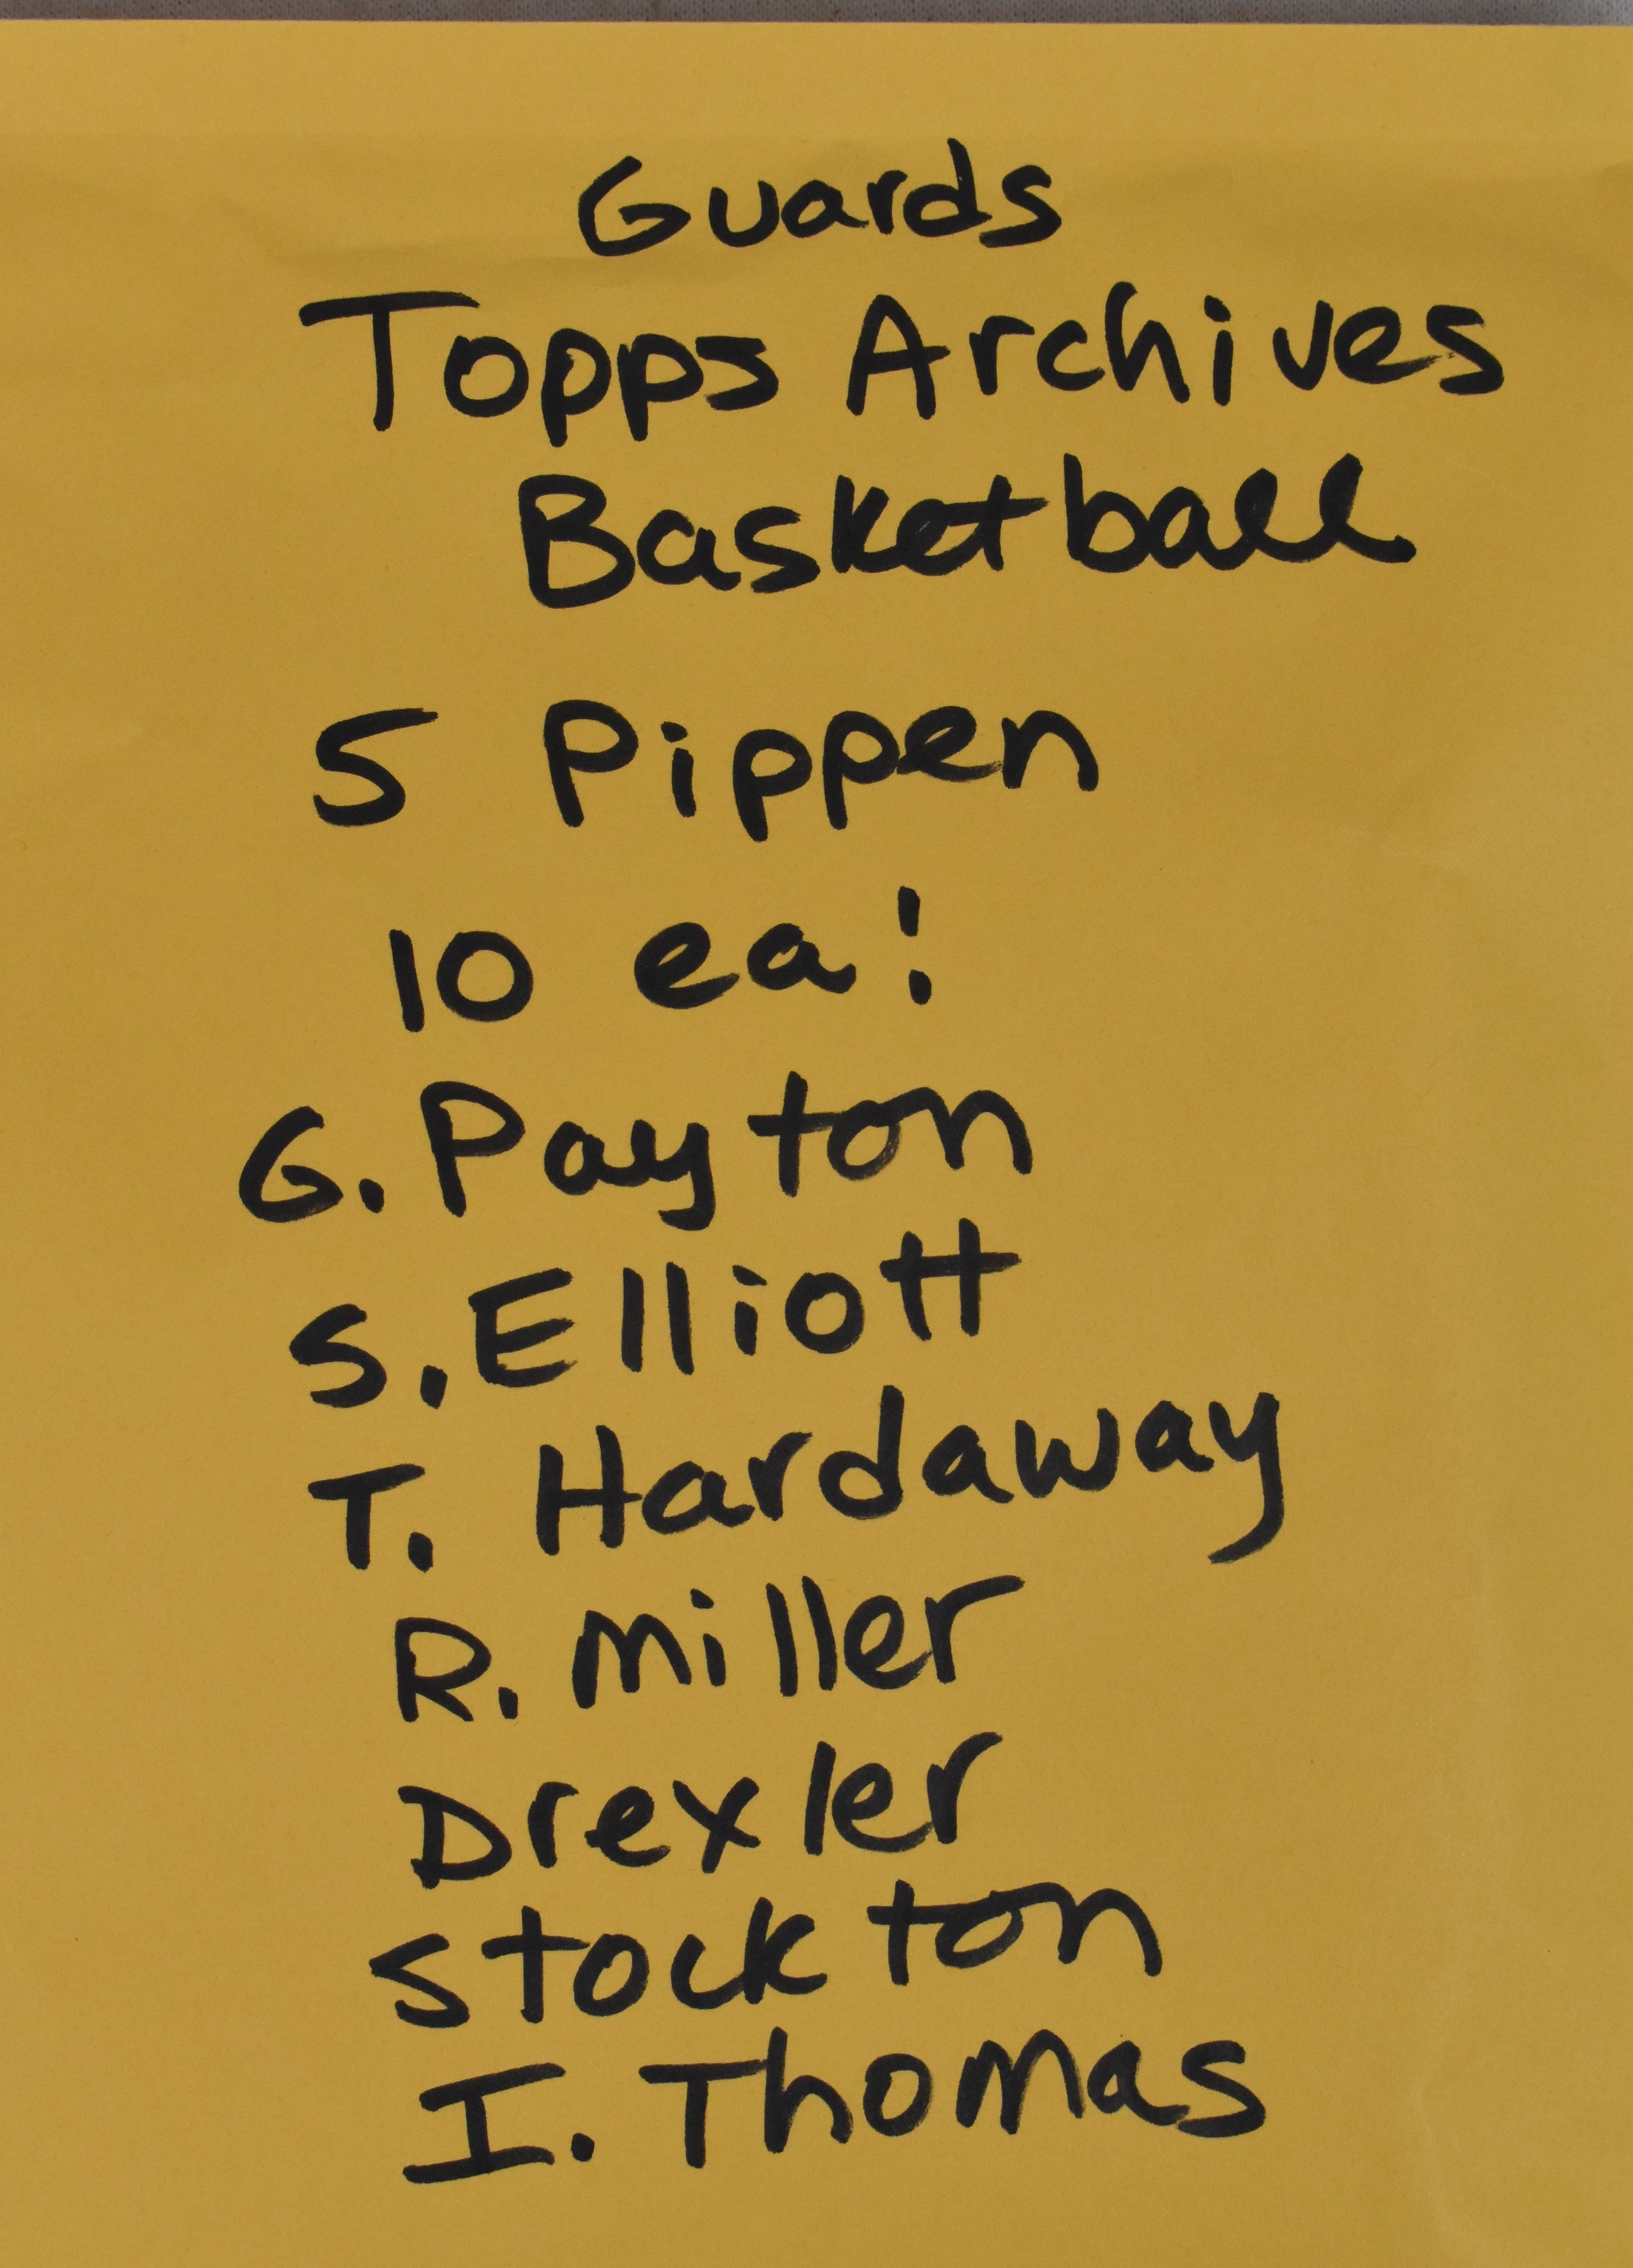 Guards
Topps Archives
Basketball
5 Pippen
10 ea!
G. Payton
S. Elliott
T. Hardaway
R. Miller
Drexler
Stockton
I. Thomas